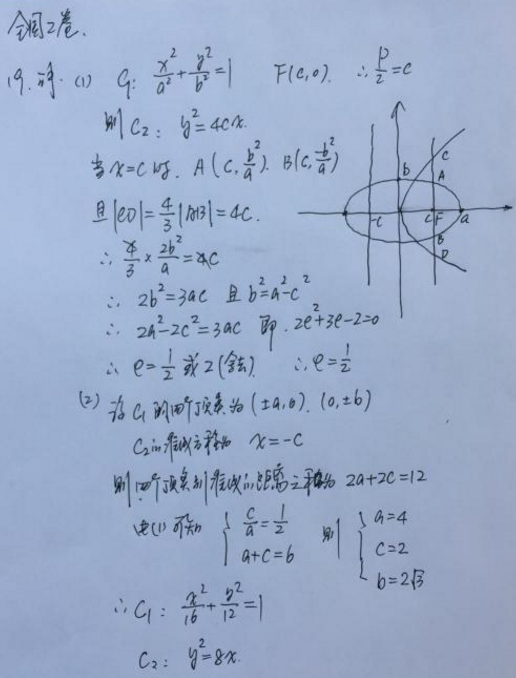 全国2卷.
19.解.(1) C₁: x²/a²+y²/b²=1 F(c,0). ∴ p/2=c
则C₂: y²=4cx.
当x=c时. A(c, b²/a). B(c, b²/a)
且|CD|=4/3|AB|=4c.
∴ 4/3×2b²/a=4c
∴ 2b²=3ac 且 b²=a²-c²
∴ 2a²-2c²=3ac 即. 2e²+3e-2=0
∴ e=1/2 或 2(舍去). ∴ e=1/2
b C A -c c F a B D
(2) 设C₁的四个顶点为(±a,0).(0,±b)
C₂的准线方程为 x=-c
则四个顶点到准线的距离之和为 2a+2c=12
由(1)可知 { c/a=1/2 a+c=6 则 { a=4 c=2 b=2√3
∴ C₁: x²/16+y²/12=1
C₂: y²=8x.